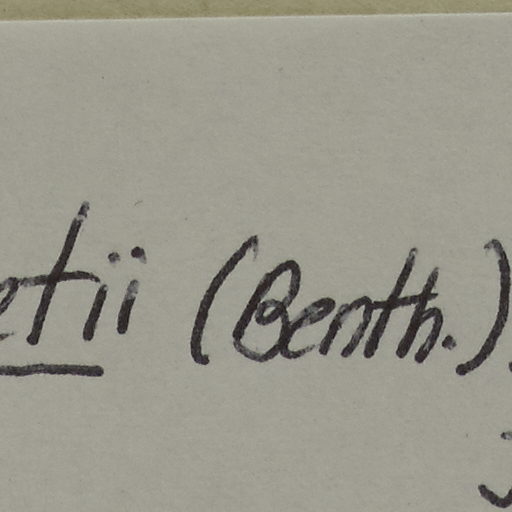 etii (Benth.)